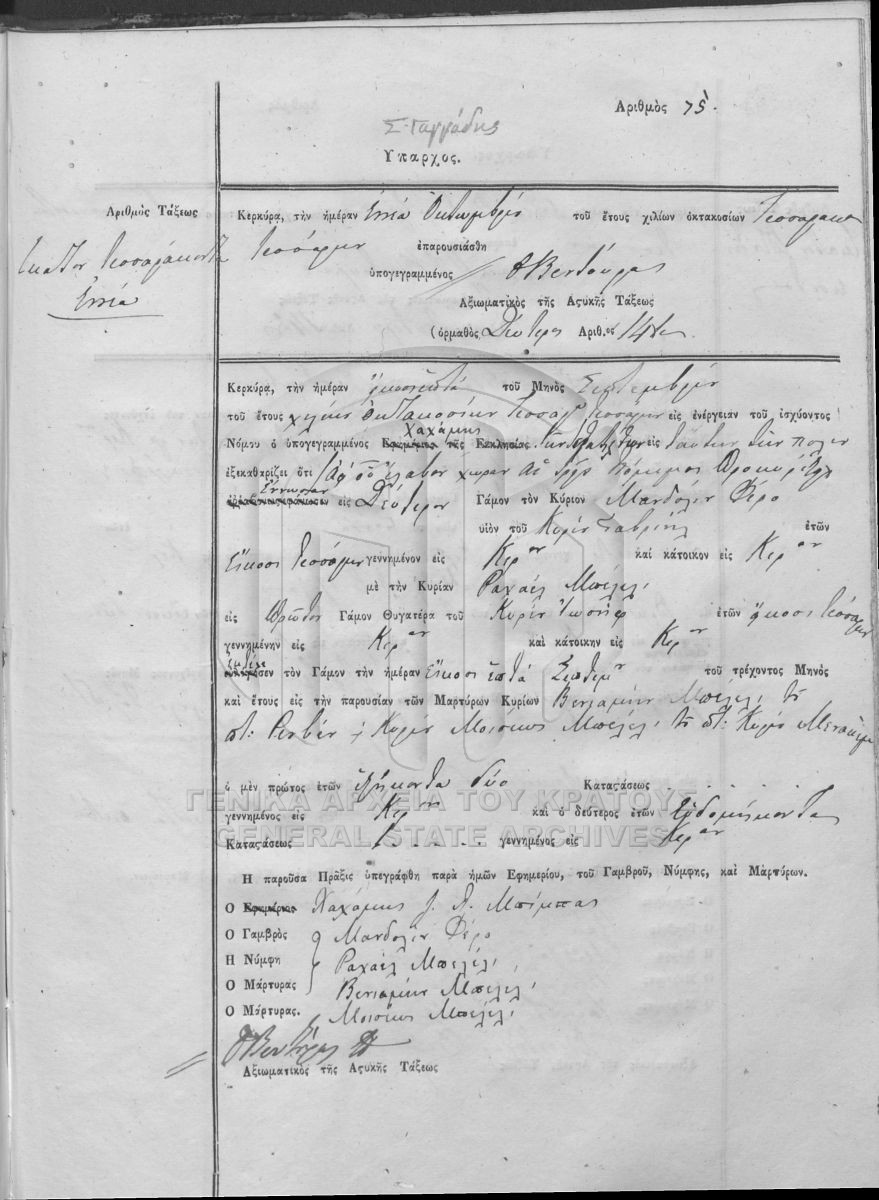 Αριθμὸς 75.
Σ. Γαγγάδης
Υπαρχος.
Αριθμὸς Τάξεως
Εκατον τεσσαράκοντα
Εννέα
Κερκύρᾳ, τὴν ἡμέραν Εννέα Οκτωμβρίου τοῦ ἔτους χιλίων ὀκτακοσίων τεσσαρακον
τεσσάρων ἐπαρουσιάσθη
ὑπογεγραμμένος Ο Βεντούρας
Αξιωματικὸς τῆς Αςυκῆς Τάξεως
(ὁρμαθὸς Δεύτερος Αριθ.ος 149
Κερκύρᾳ, τὴν ἡμέραν εἰκοσιεπτά τοῦ Μηνὸς Σεπτεμβρίου
τοῦ ἔτους χιλίων Οκτακοσίων τεσσαρ τεσσάρων εἰς ἐνέργειάν τοῦ ἰσχύοντος
Νόμου ὁ ὑπογεγραμμένος Εφημέριος Χαχάμης τῆς Εκκλησίας τῶν εἰς ταύτην τὴν πόλιν
ἐξεκαθαρίζει ὅτι Αφ οὗ ἔλαβον χώραν αἱ τρεῖς νόμιμος
Εννωσαν εἰς Δεύτερον Γάμον τὸν Κύριον Μανδολὶν Φέρο
υἱὸν τοῦ Κυρίου Γαβριὴλ ἐτῶν
Είκοσι τεσσάρων γεννημένον εἰς Κερ.αν καὶ κάτοικον εἰς Κερ.αν
μὲ τὴν Κυρίαν Ραχαὲλ Μπελέλι
εἰς Πρῶτον Γάμον Θυγατέρα τοῦ Κυρίου Ιωσὴφ ἐτῶν εἰκοσι τεσσάρων
γεννημένην εἰς Κερ.αν καὶ κάτοικην εἰς Κερ.αν
τὸν Γάμον τὴν ἡμέραν Είκοσι ἑπτά Σεπτεμ.ου τοῦ τρέχοντος Μηνὸς
καὶ ἔτους εἰς τὴν παρουσίαν τῶν Μαρτύρων Κυρίων Βενιαμὶν Μπελέλι τοῦ
ποτ: Ρουβέν ς Κυρίου Μοισῆως Μπελέλι τοῦ ποτ: Κυρίου Μεναχέμ
ὁ μὲν πρῶτος ἐτῶν ἑξήκοντα δύο Καταςάσεως
γεννημένος εἰς Κερ.αν καὶ ὁ δεύτερος ἐτῶν Εβδομήκοντα
Καταςάσεως γεννημένος εἰς Κερ.αν
Η παροῦσα Πρᾶξις ὑπεγράφθη παρὰ ἡμῶν Εφημερίου, τοῦ Γαμβροῦ, Νύμφης, καὶ Μάρτύρων.
Ο Εφημέριος Χαχάμης Μπίμπας
Ο Γαμβρὸς Μανδολὶν Φέρο
Η Νύμφη Ραχαὲλ Μπελέλι
Ο Μάρτυρας Βενιαμὶν Μπελέλι
Ο Μάρτυρας. Μοισῆως Μπελέλι
Ο Βεντούρας
Αξιωματικὸς τῆς Αςυκῆς Τάξεως
ΓΕΝΙΚΑ ΑΡΧΕΙΑ ΤΟΥ ΚΡΑΤΟΥΣ
GENERAL STATE ARCHIVES